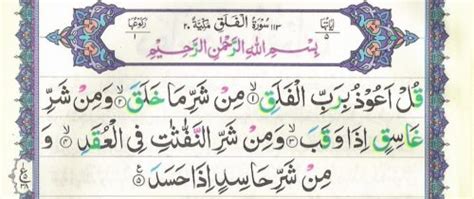 اٰيَاتُهَا ٥ ١١٣ سُوْرَةُ الْفَلَقِ مَدَنِيَّةٌ ٢٠ رَكُوْعُهَا ١
بِسْمِ اللّٰهِ الرَّحْمٰنِ الرَّحِيْمِ
قُلْ اَعُوْذُ بِرَبِّ الْفَلَقِ ۙ۱ مِنْ شَرِّ مَا خَلَقَ ۙ۲ وَمِنْ شَرِّ
غَاسِقٍ اِذَا وَقَبَ ۙ۳ وَمِنْ شَرِّ النَّفّٰثٰتِ فِي الْعُقَدِ ۙ۴ وَ
مِنْ شَرِّ حَاسِدٍ اِذَا حَسَدَ ۵ ع